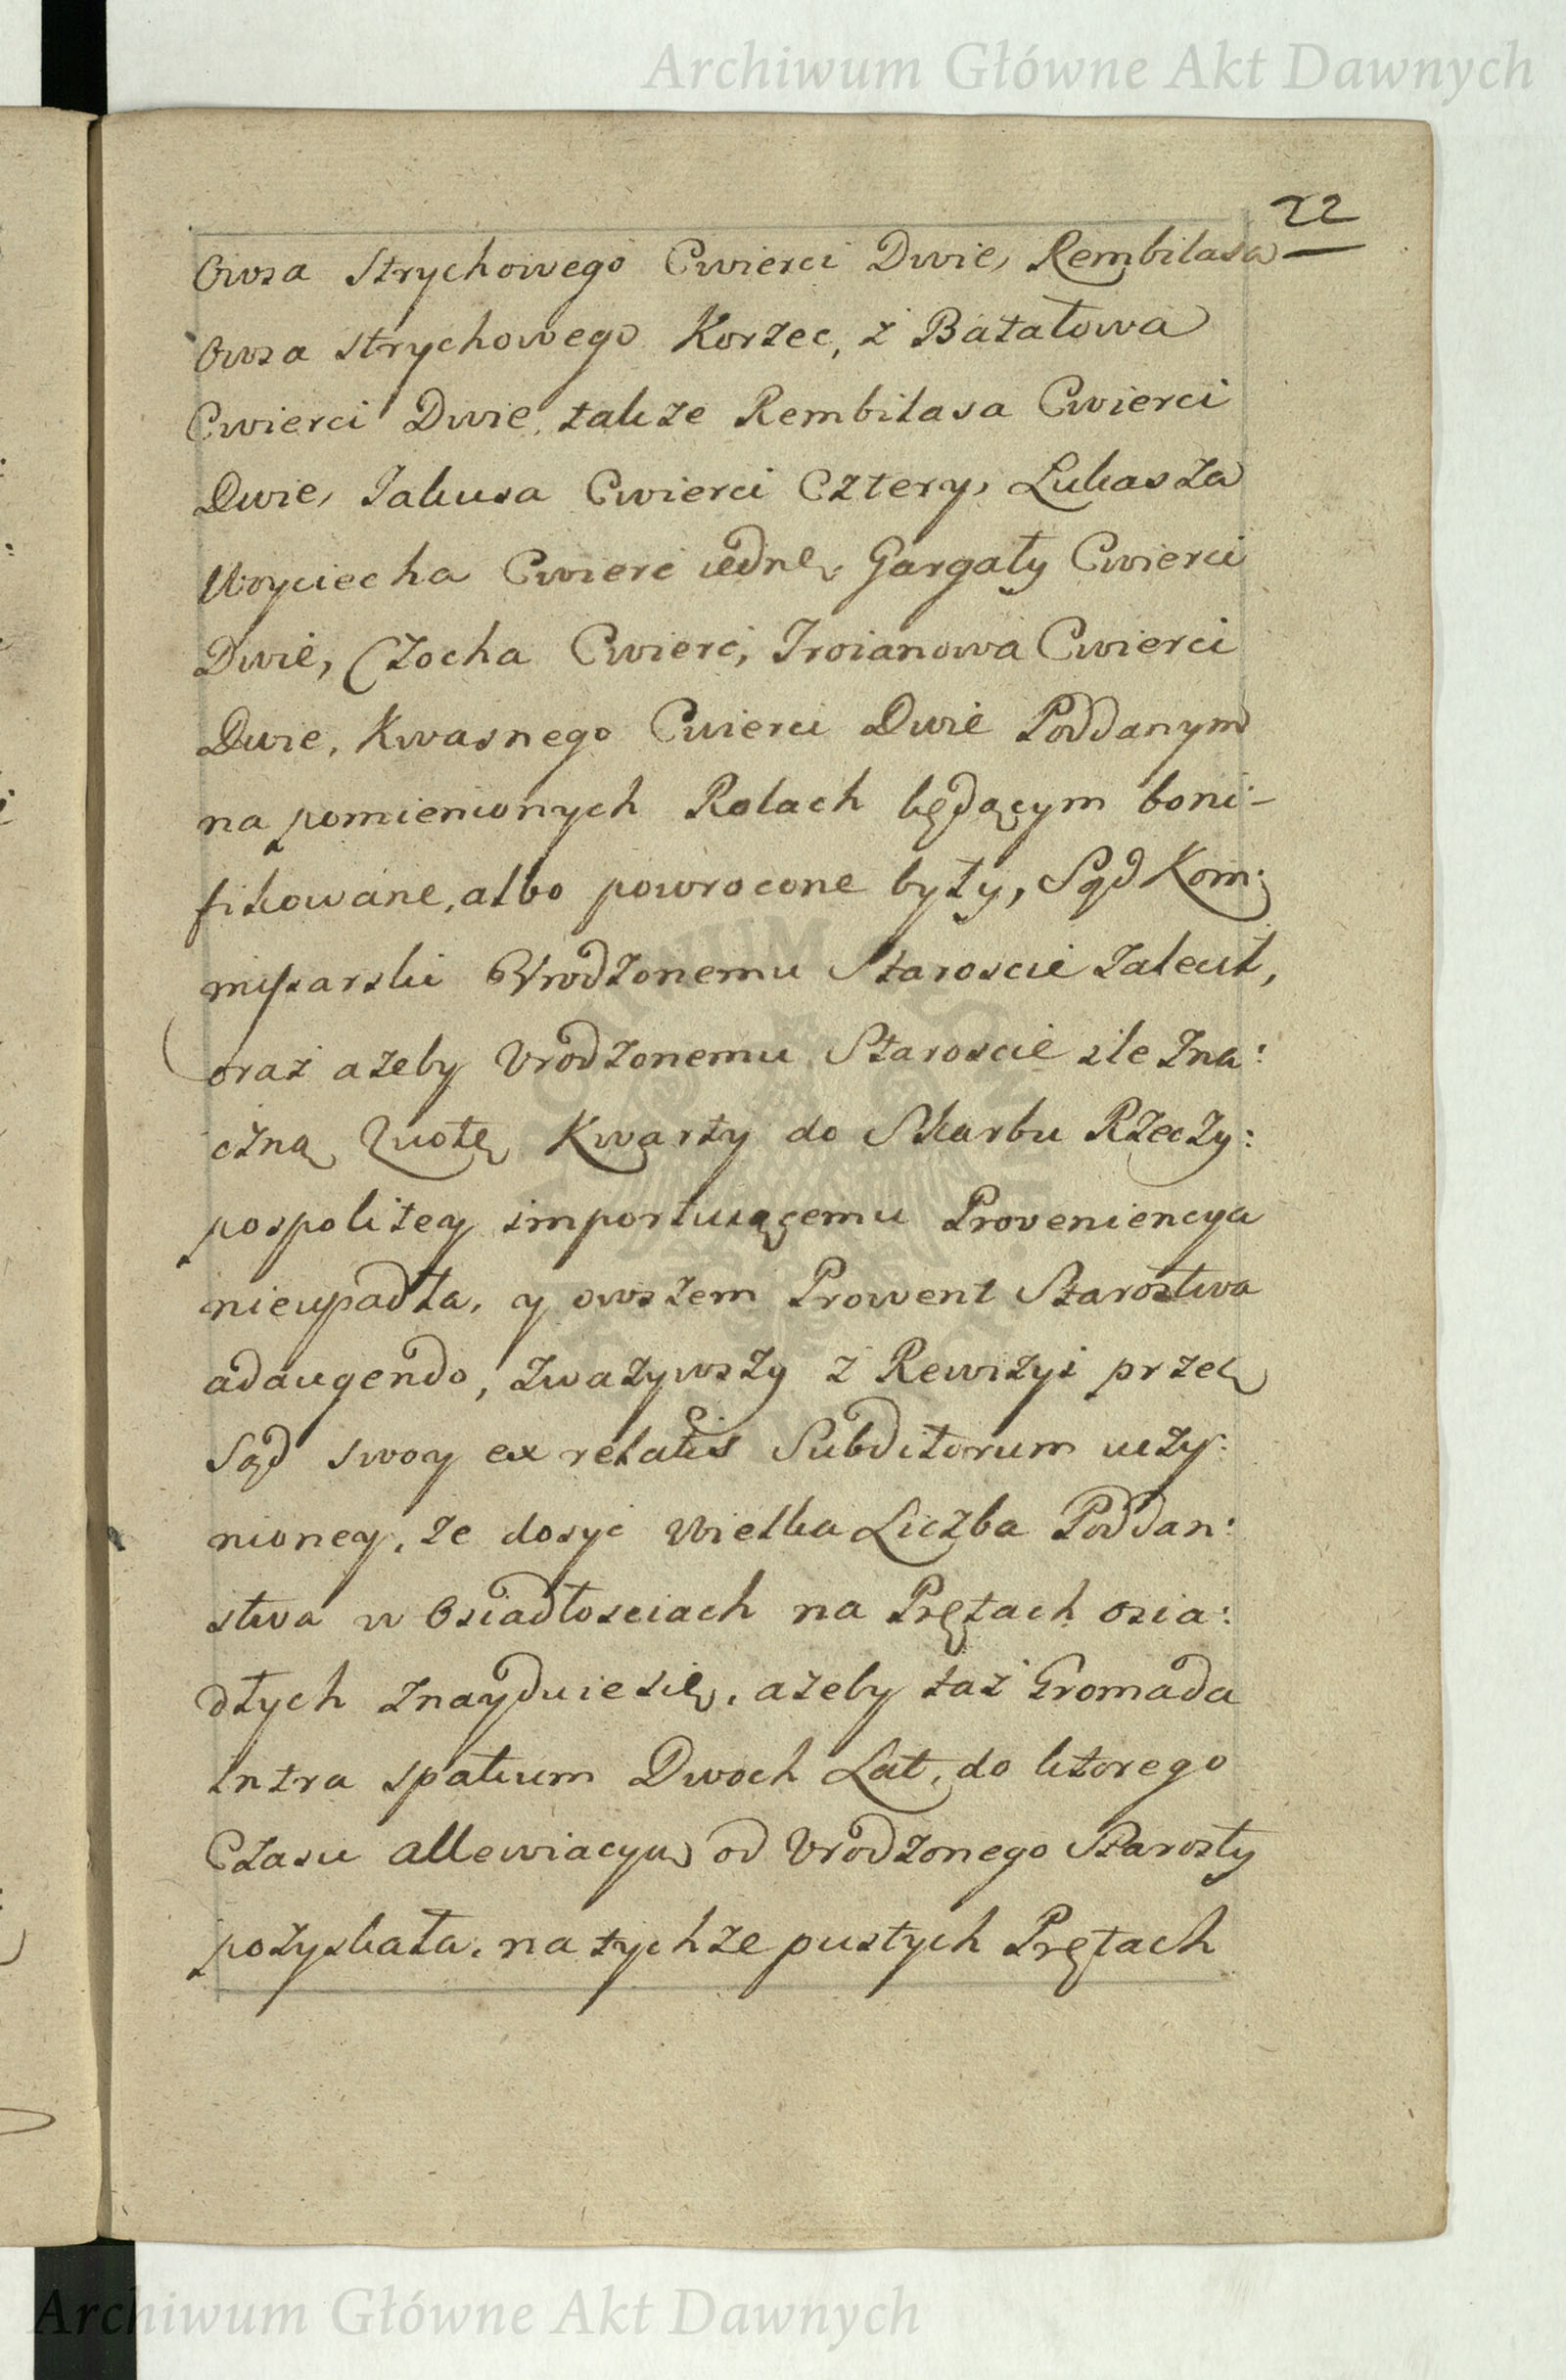 Archiwum Główne Akt Dawnych
22
Owsa Strychowego Cwierci Dwie, Rembilasa
Owsa strychowego Korzec, z Batałowa
Cwierci Dwie, także Rembilasa Cwierci
Dwie, Jakusa Cwierci Cztery, Łukasza
Woyciecha Cwierć iednę, Gargały Cwierci
Dwie, Czocha Cwierć, Troianowa Cwierci
Dwie, Kwasnego Cwierci Dwie Poddanym
na pomienionych Rolach będącym boni-
fikowane, albo powrocone były, Sąd Kom:
missarski Urodzonemu Staroscie zalecił,
oraz azeby Urodzonemu Staroscie ile zna:
czną Quotę Kwarty do Skarbu Rzeczy:
pospolitey importuiącemu Proveniencya
nieupadła, y owszem Prowent Starostwa
adaugendo, zwazywszy z Rewizyi przez
Sąd swoy ex relatis Subditorum uczy:
nioney, ze dosyć Wielka Liczba Poddan:
stwa w Osiadłosciach na Prętach osia:
dłych znayduie się, azeby taż Gromada
intra spatium Dwoch Lat, do ktorego
Czasu allewiacyą od Urodzonego Starosty
pozyskała, na tychze pustych Prętach
Archiwum Główne Akt Dawnych